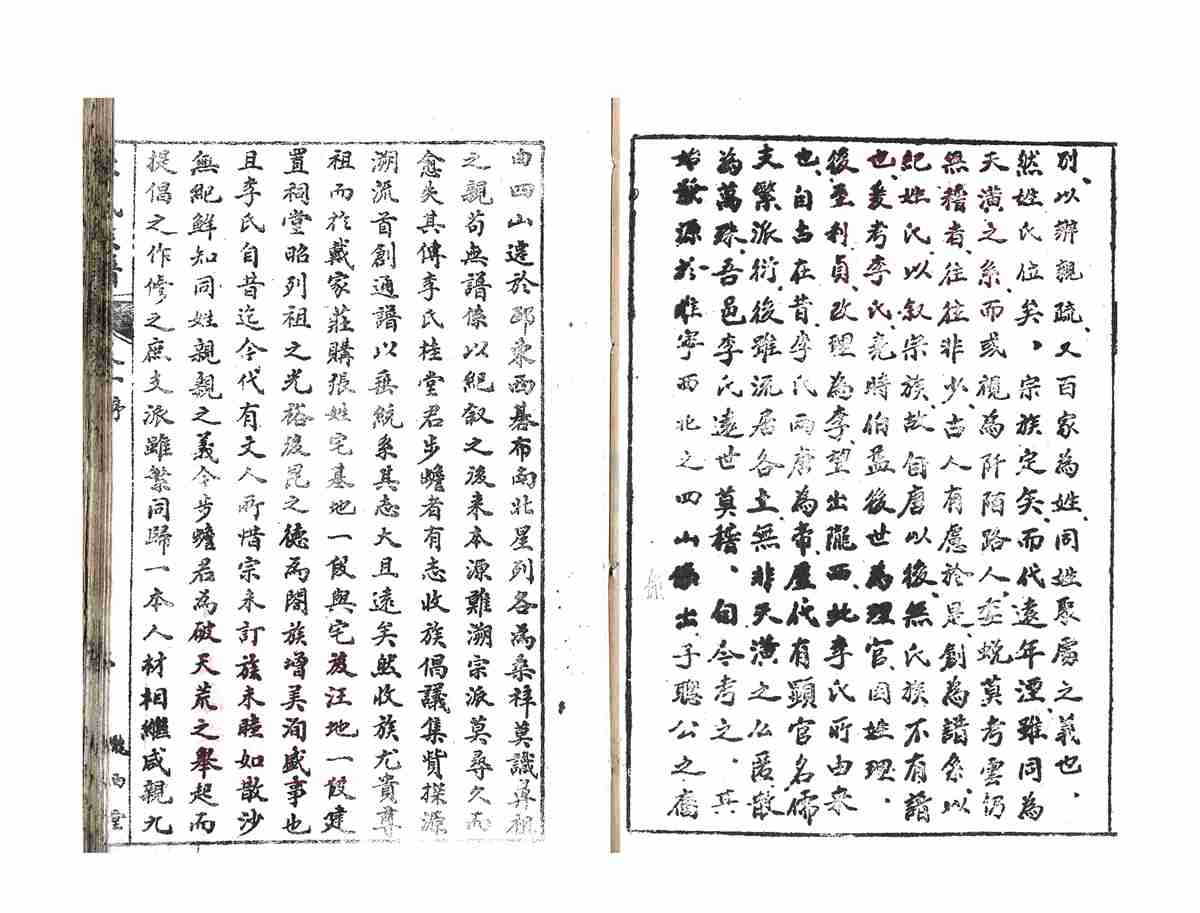 別、以辨親疏、又百家為姓、同姓聚處之義也、
然姓氏位矣、宗族定矣、而代遠年湮、雖同為
天潢之系、而或視為阡陌路人、蛻莫考雲仍
無稽者、往往非少、古人有慮於是、創為譜系、以
紀姓氏、以叙宗族、故自唐以後、無氏族不有譜
也、爰考李氏、堯時伯益後世為理官、因姓理、
後至利貞、改理為李、望出隴西、此李氏所由來
也、自古在昔、李氏西唐為帝、歷代有顯官名儒
支繁派衍、後雖流居各土、無非天潢之公匿散
為萬殊、吾邑李氏遠世莫稽、自今考之、其
始發源於淮寧西北之四山係出子聰公之裔
由四山遠於邵東西碁布南北星列各為桑梓莫識鼻祖
之親苟無譜係以紀叙之後来本源難溯宗派莫尋久而
愈失其傳李氏桂堂君步蟾者有志收族倡議集貲探源
溯流首創通譜以垂統系其志大且遠矣然收族尤貴尊
祖而於戴家莊購張姓宅基地一段與宅後汪地一段建
置祠堂昭列祖之光裕後昆之德為閤族增美洵盛事也
且李氏自昔迄今代有文人所惜宗未訂族未睦如散沙
無紀鮮知同姓親親之義今步蟾君為破天荒之舉起而
提倡之作修之庶支派雖繁同歸一本人材相繼咸親九
氏 譜 序